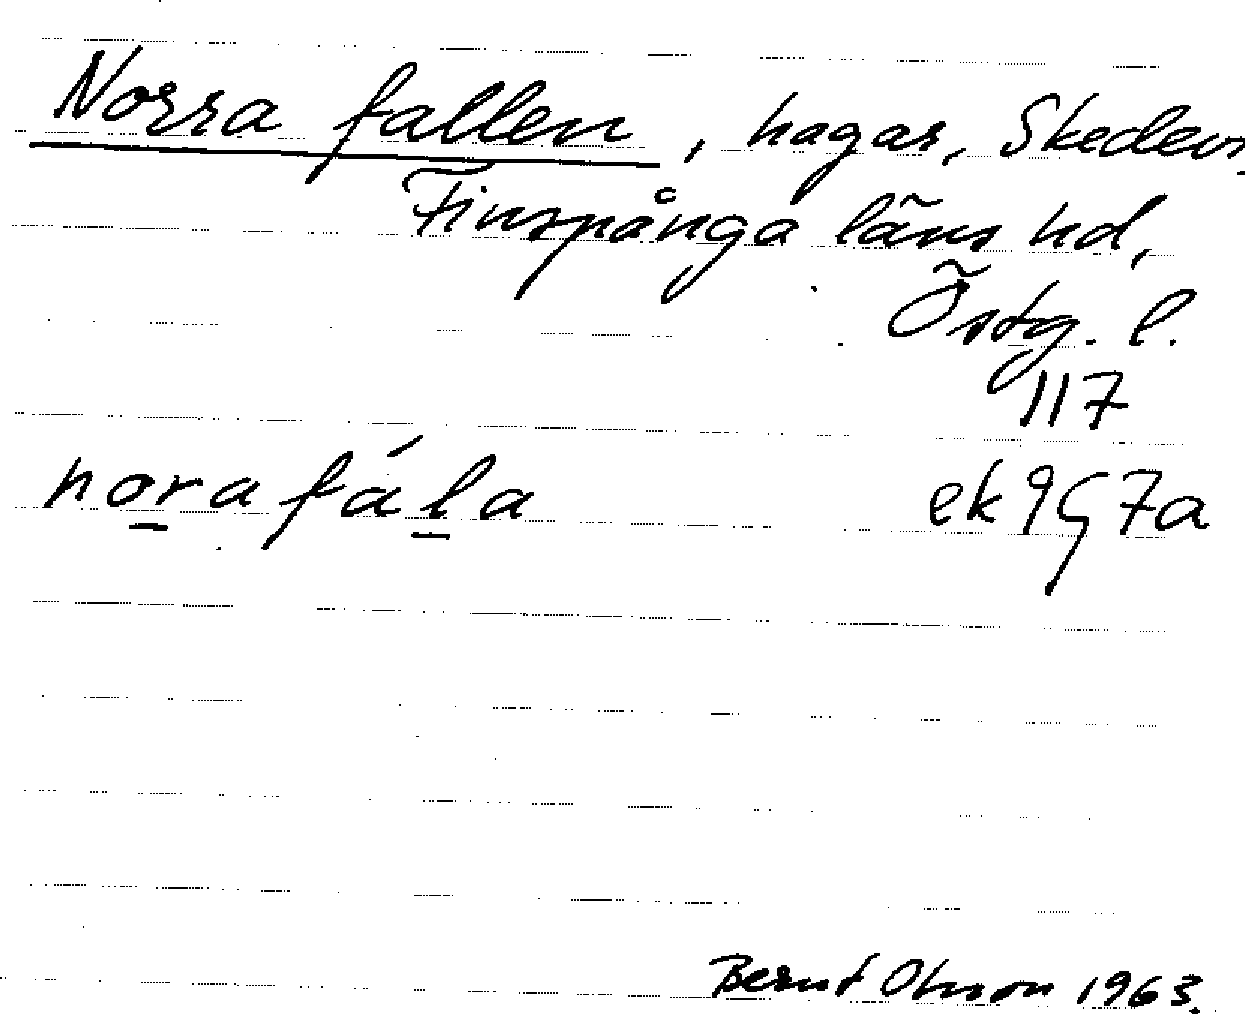 Norra fallen, hagar, Skedevi
Finspånga läns hd,
Östg. l.
117
nora fála ek 9G7a
Bernt Olsson 1963.